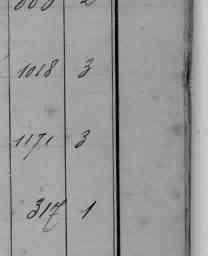 1018 3
1171 3
317 1